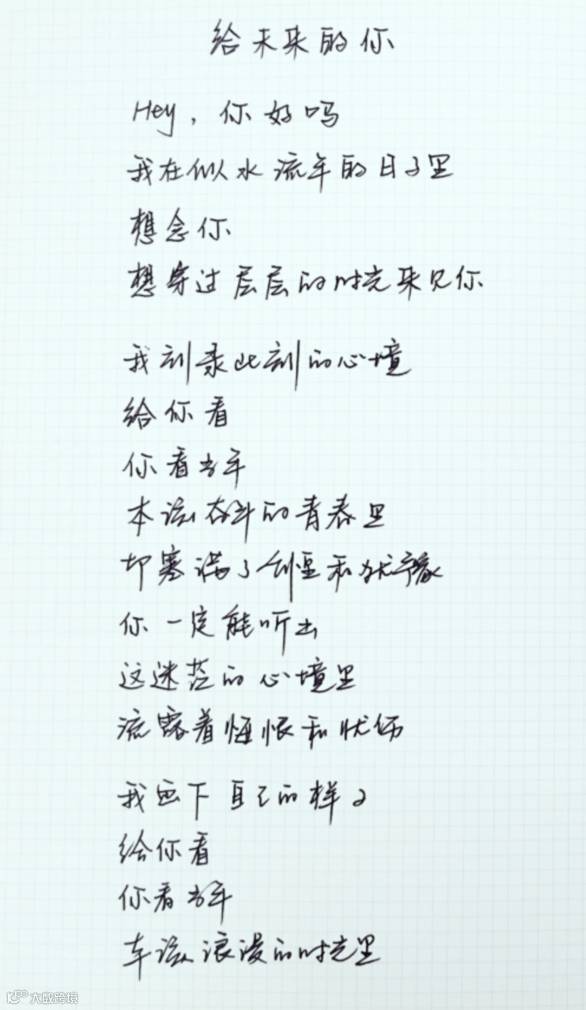 给未来的你
Hey，你好吗
我在似水流年的日子里
想念你
想穿过层层的时光来见你
我刻录此刻的心境
给你看
你看当年
本该奋斗的青春里
却塞满了创里和犹豫
你一定能听出
这迷茫的心境里
流露着悔恨和忧伤
我画下自己的样子
给你看
你看当年
本该浪漫的时光里
大数跨境